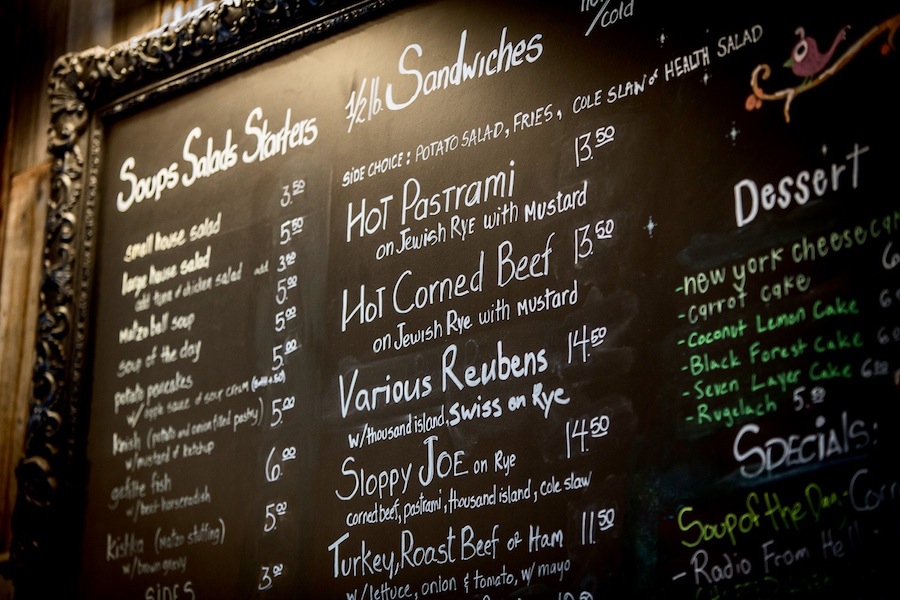 Soups Salads Starters
small house salad 3.50
large house salad 5.50
add tuna or chicken salad add 3.00
Matzo ball soup 5.00
soup of the day 5.00
potato pancakes 5.00
w/ apple sauce or sour cream
Knish (potato and onion filled pastry) 5.00
w/ mustard or ketchup
gefilte fish 6.00
w/ beet horseradish
Kishka (Matzo stuffing) 5.00
w/ brown gravy
SIDES 3.00
hot/cold
1/2 lb. Sandwiches
SIDE CHOICE: POTATO SALAD, FRIES, COLE SLAW or HEALTH SALAD
Hot Pastrami 13.50
on Jewish Rye with Mustard
Hot Corned Beef 13.50
on Jewish Rye with mustard
Various Reubens 14.50
w/thousand island, Swiss on Rye
Sloppy JOE on Rye 14.50
corned beef, pastrami, thousand island, cole slaw
Turkey, Roast Beef or Ham 11.50
w/ lettuce, onion & tomato, w/ mayo
Dessert
-new york cheesecake
-carrot cake
-Coconut Lemon Cake
-Black Forest Cake
-Seven Layer Cake
-Rugelach 5.50
Specials:
Soup of the Day-
- Radio From Hell